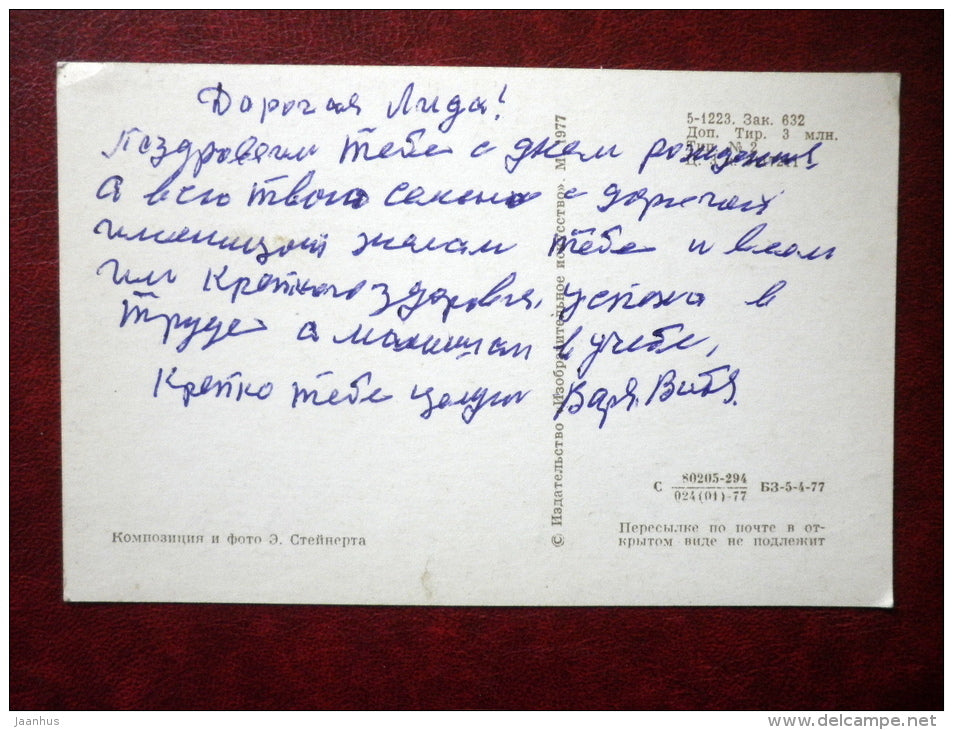 Дорогая Лида!
Поздровяем тебе с днем рождения
а всю твою семью с дорогой
именицой желаем тебе и всем
им крепкого здоровья, успеха в
труде а малышам в учебе,
Крепко тебе целуем Варя. Витя.
5-1223. Зак. 632
Доп. Тир. 3 млн.
Тип. № 2
© Издательство „Изобразительное искусство". М 1977
С 80205-294 БЗ-5-4-77
024(01)-77
Пересылке по почте в от-
крытом виде не подлежит
Композиция и фото Э. Стейнерта
jaanhus
www.delcampe.net